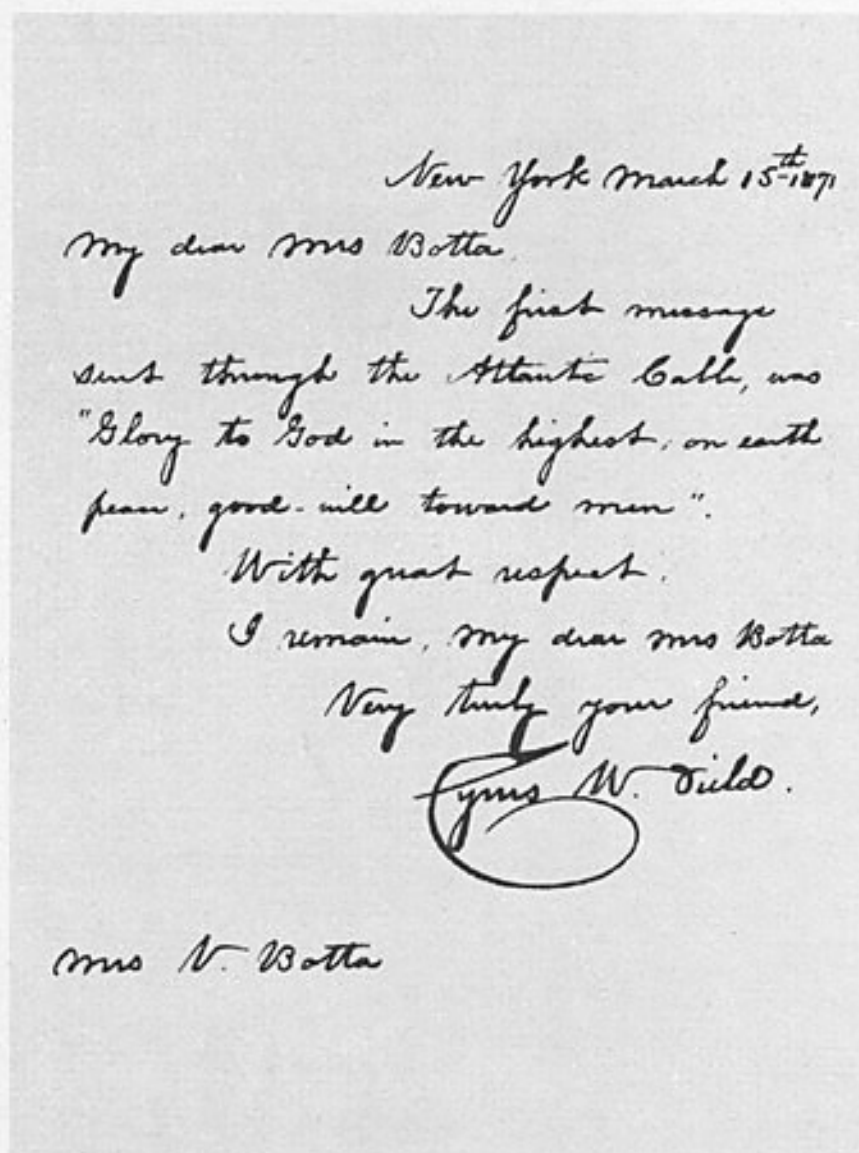 New York March 15th 1871
My dear Mrs Botta.
The first message
sent through the Atlantic Cable, was
"Glory to God in the highest, on earth
peace, good-will toward men".
With great respect.
I remain, my dear Mrs Botta
Very truly your friend,
Cyrus W. Field.
Mrs V. Botta